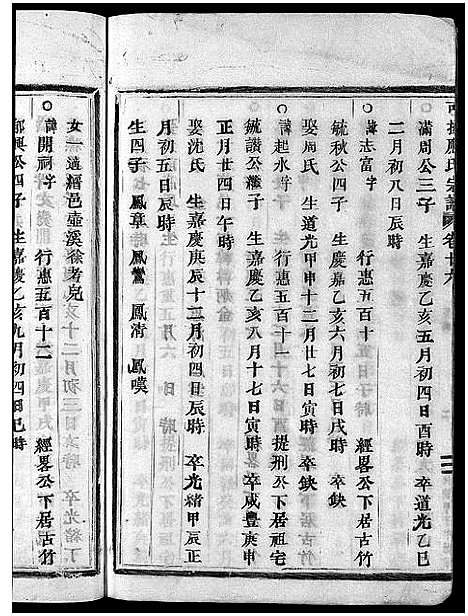 應氏宗譜 卷廿六
滿周公三子 生嘉慶乙亥五月初四日酉時 卒道光乙巳
二月初八日辰時
諱志富字 行惠五百十 經畧公下居古竹
毓秋公四子 生嘉慶乙亥六月初七日戌時 卒缺
娶周氏 生道光甲申十二月廿七日寅時 卒缺
諱起水字 行惠五百十一 提刑公下居祖宅
毓讚公繼子 生嘉慶乙亥八月十七日寅時 卒咸豐庚申
正月廿四日午時
娶沈氏 生嘉慶庚辰十二月初四日辰時 卒光緒甲辰正
月初五日辰時
生四子 鳳章 鳳鸞 鳳清 鳳嘆
女一適縉邑壺溪徐
諱開祠字 行惠五百十二 經畧公下居古竹
郁興公四子 生嘉慶乙亥九月初四日巳時